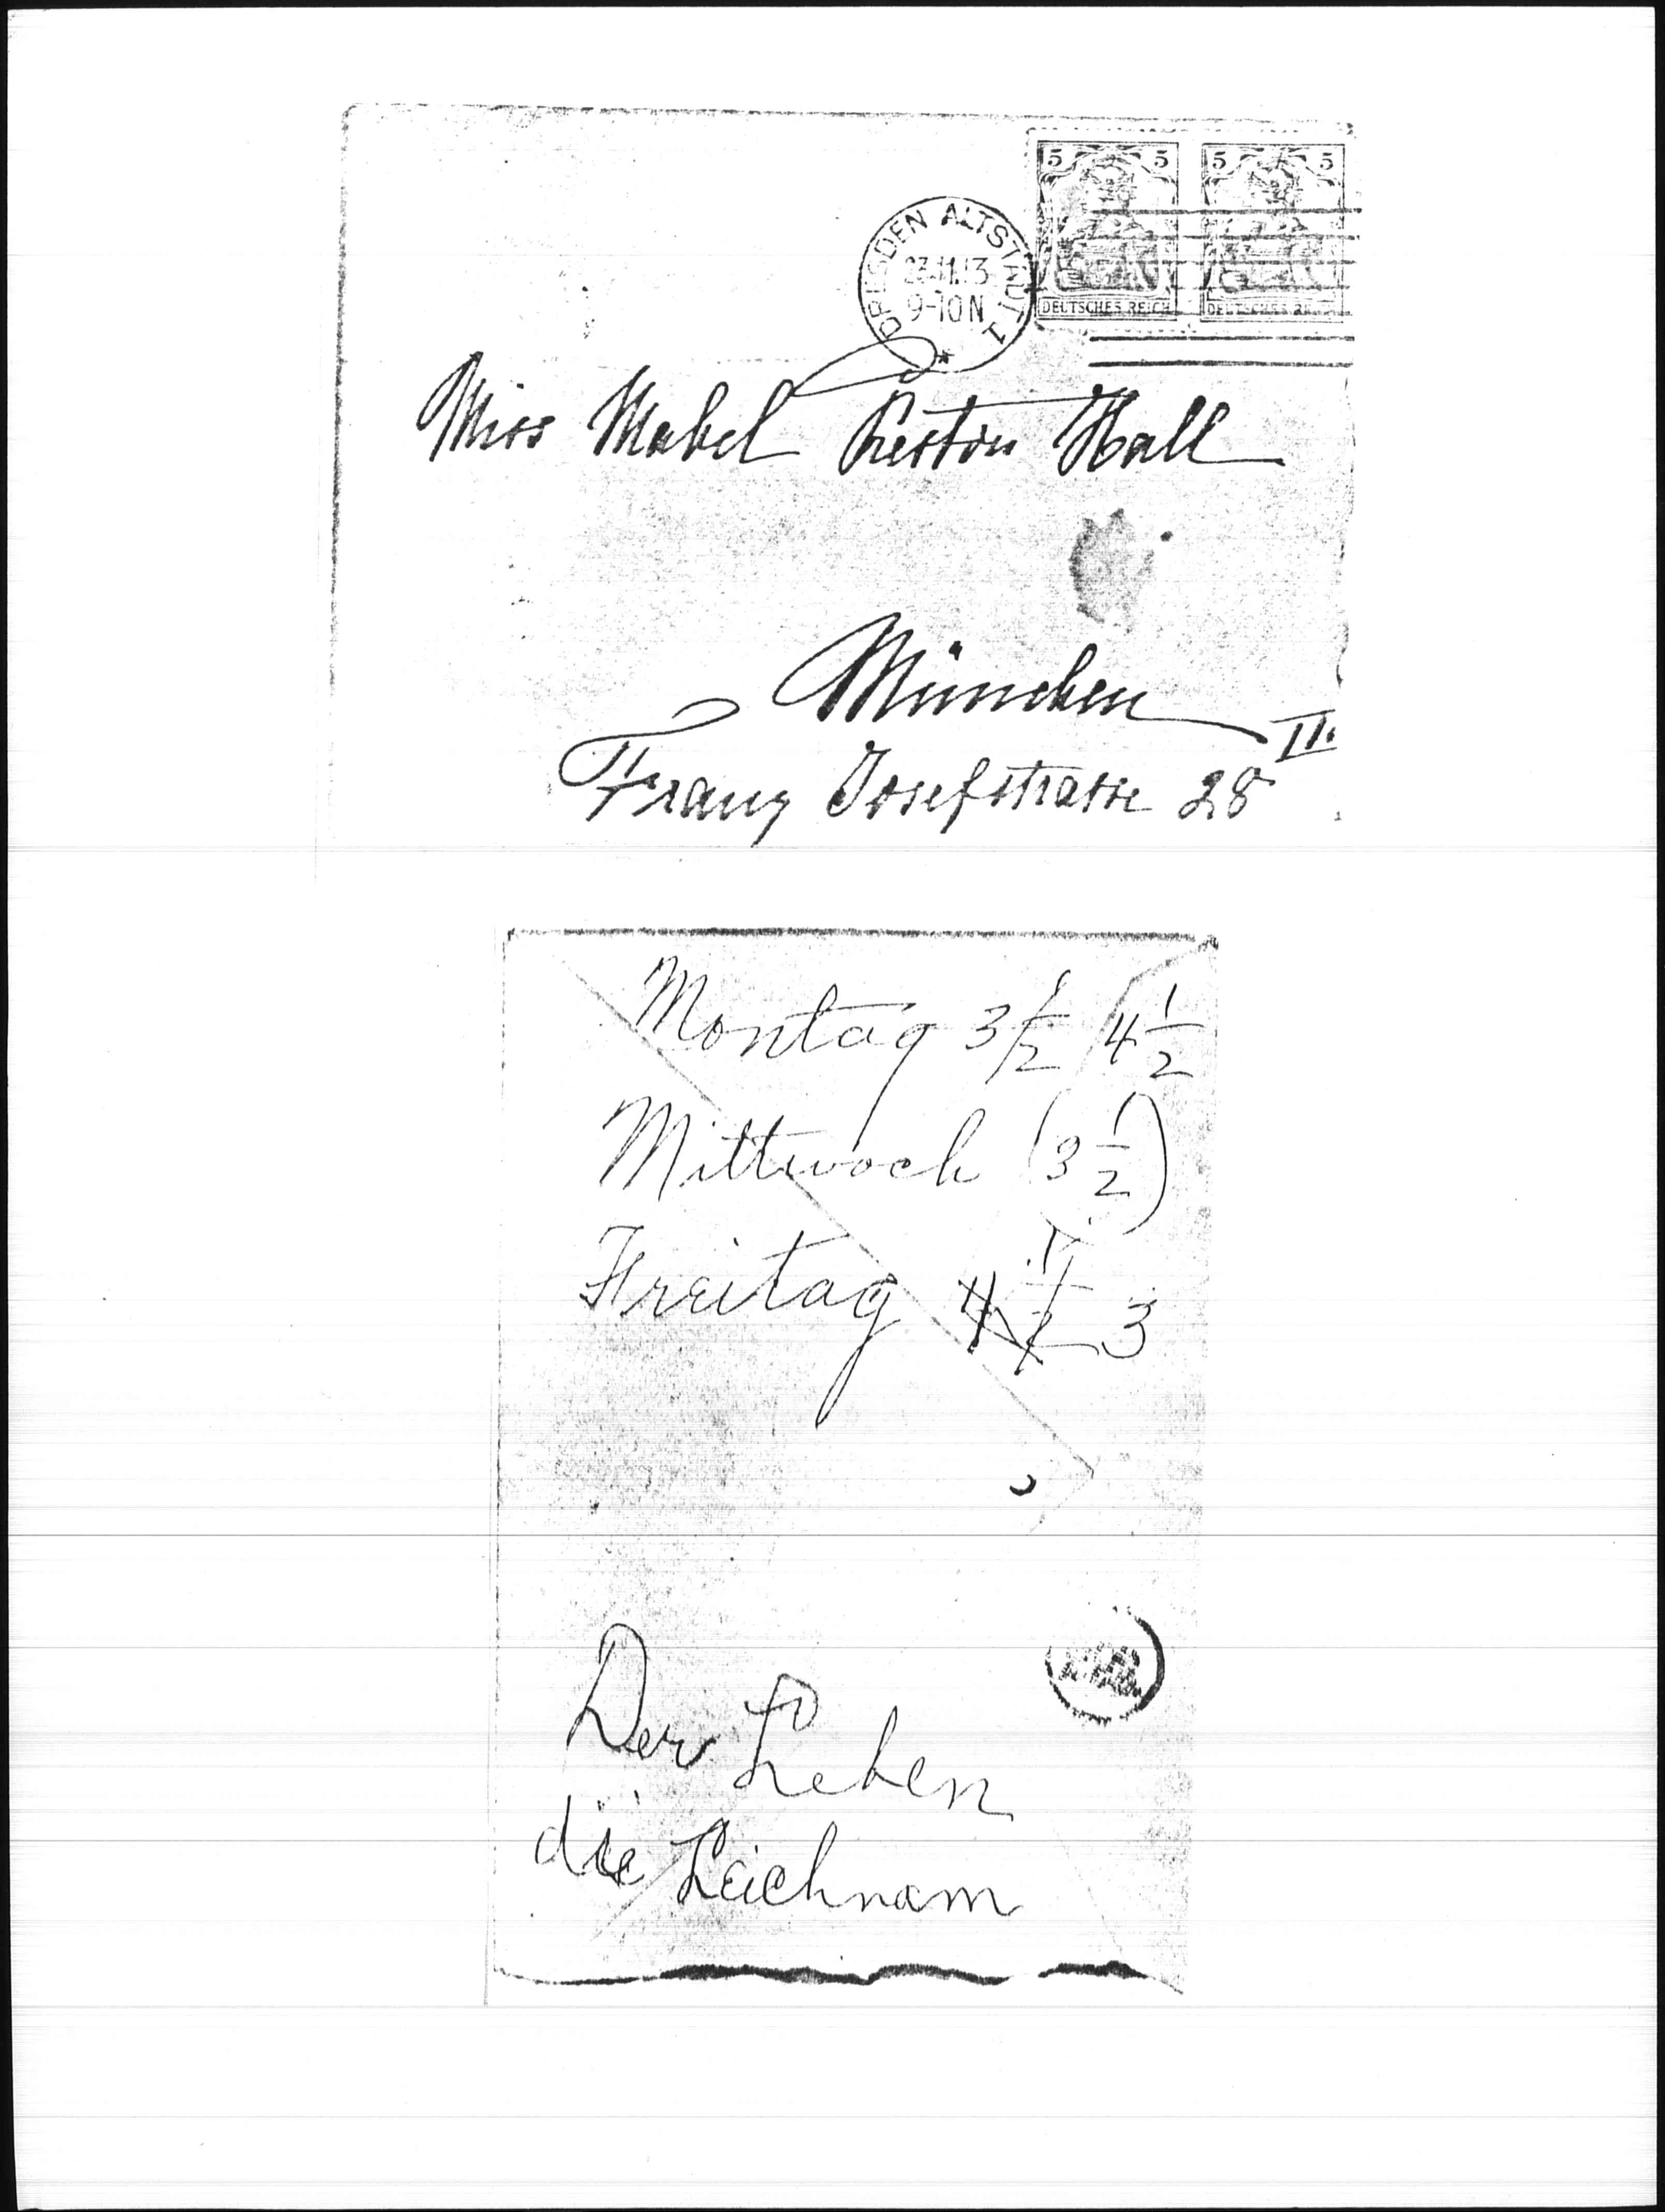 5 5 5 5
DRESDEN ALTSTADT 1
23.11.13
9-10N
*
DEUTSCHES REICH DEUTSCHES REICH
Miss Mabel Preston Hall
München II.
Franz Josefstrasse 28
Montag 3 1/2 4 1/2
Mittwoch (3 1/2)
Freitag 4 1/2 3
Der Leben
die Leichnam